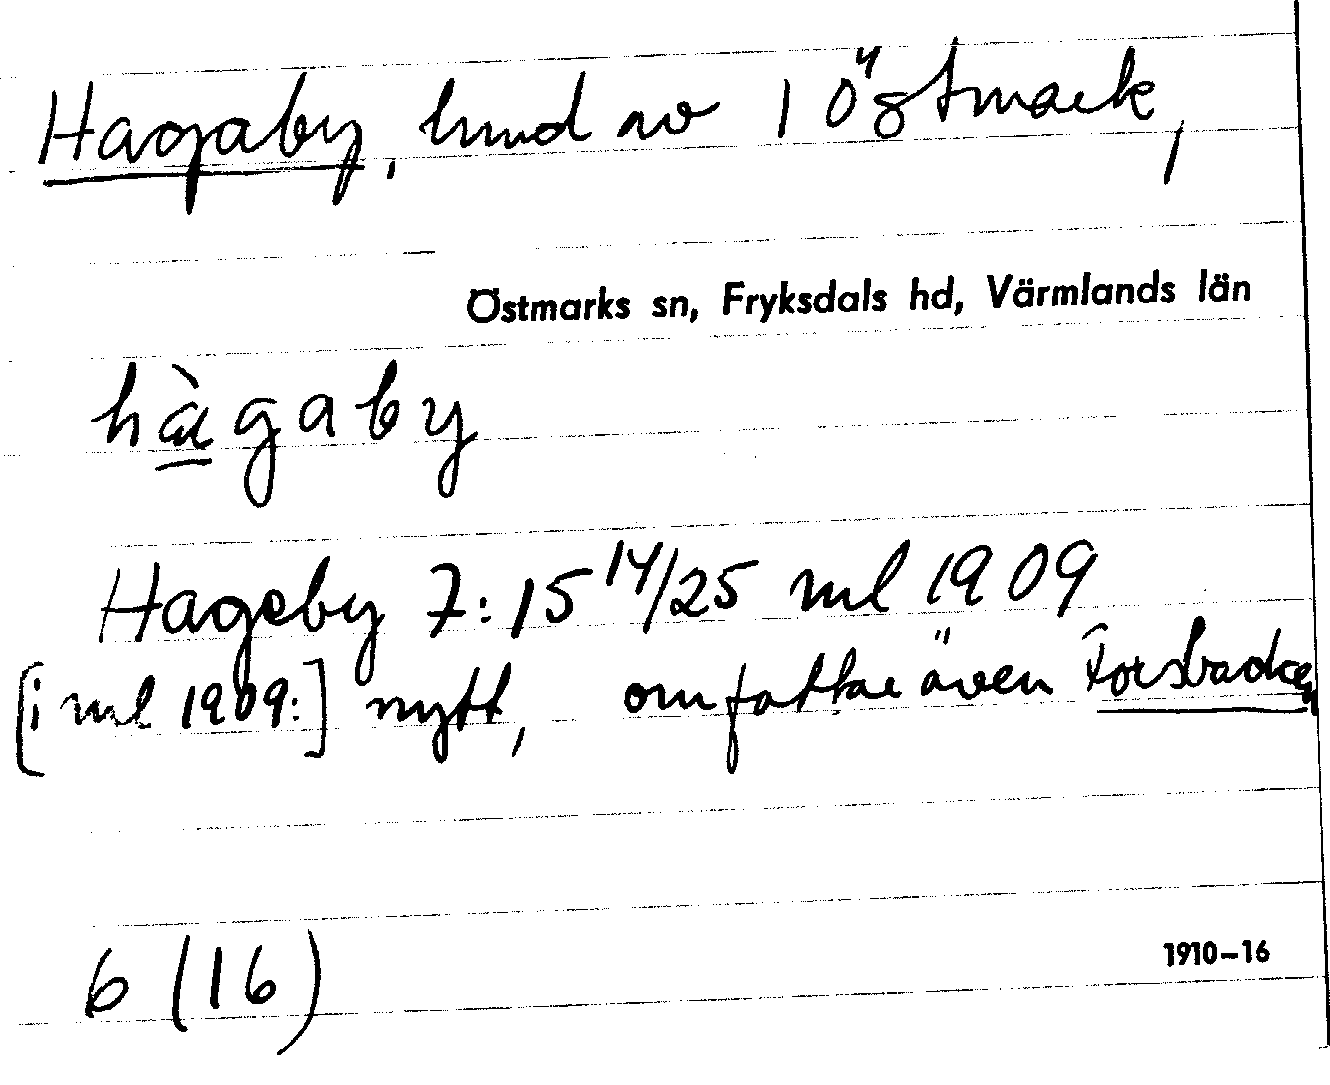 Hagaby, hmd av 1 Östmark,
Östmarks sn, Fryksdals hd, Värmlands län
hàgaby
Hageby 7:15 14/25 ml 1909
[i ml 1909:] nytt, omfattar även Forsbacken
6 (16)
1910–16